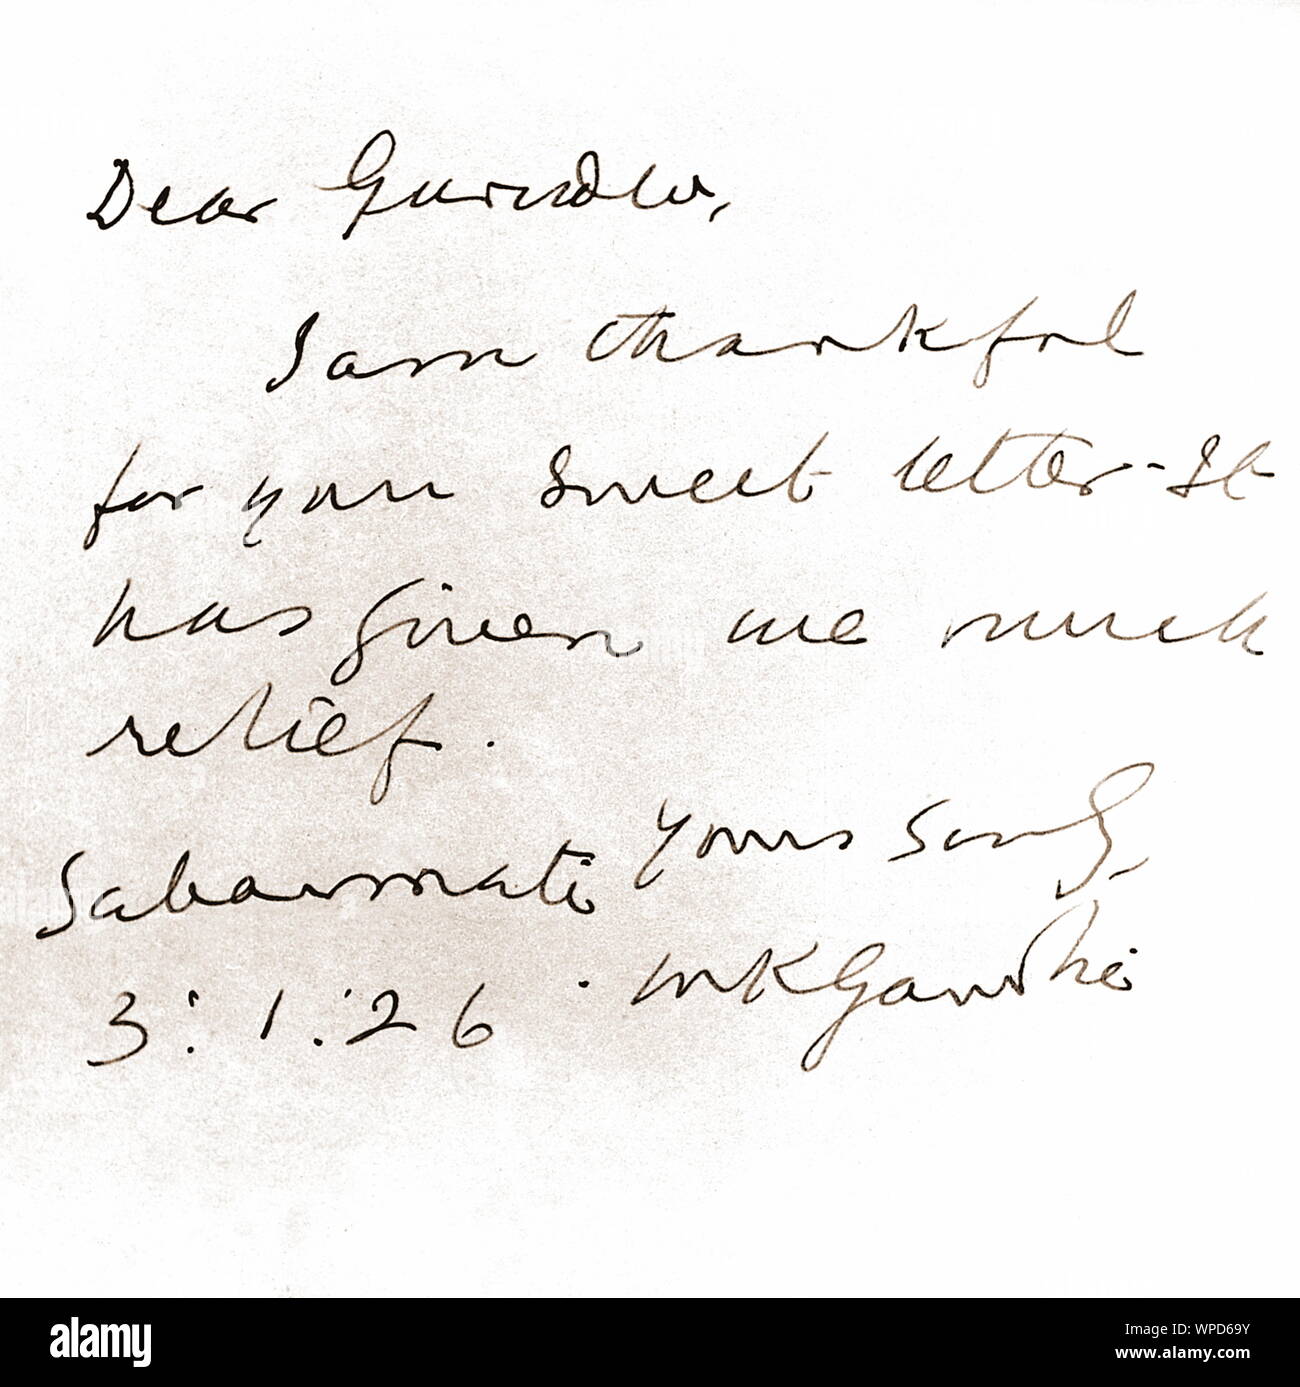 Dear Gurudev,
I am thankful
for your sweet letter. It
has given me much
relief.
Yours Sincly
Sabarmati
MKGandhi
3:1:26
alamy
Image ID: WPD69Y
www.alamy.com